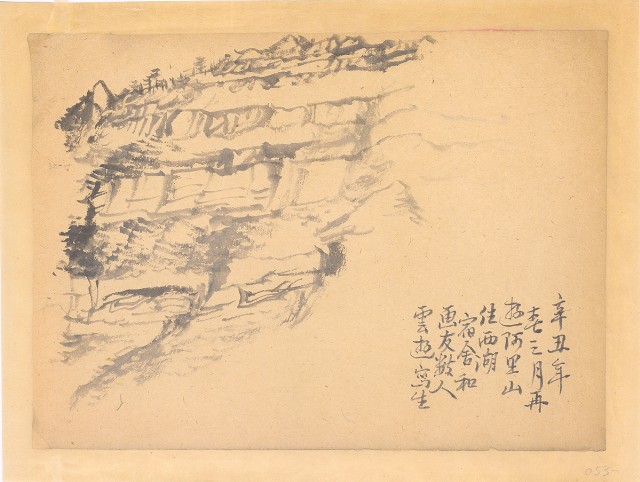 辛丑年
春三月再
遊阿里山
住西湖
宿舍和
画友数人
雲遊寫生
053